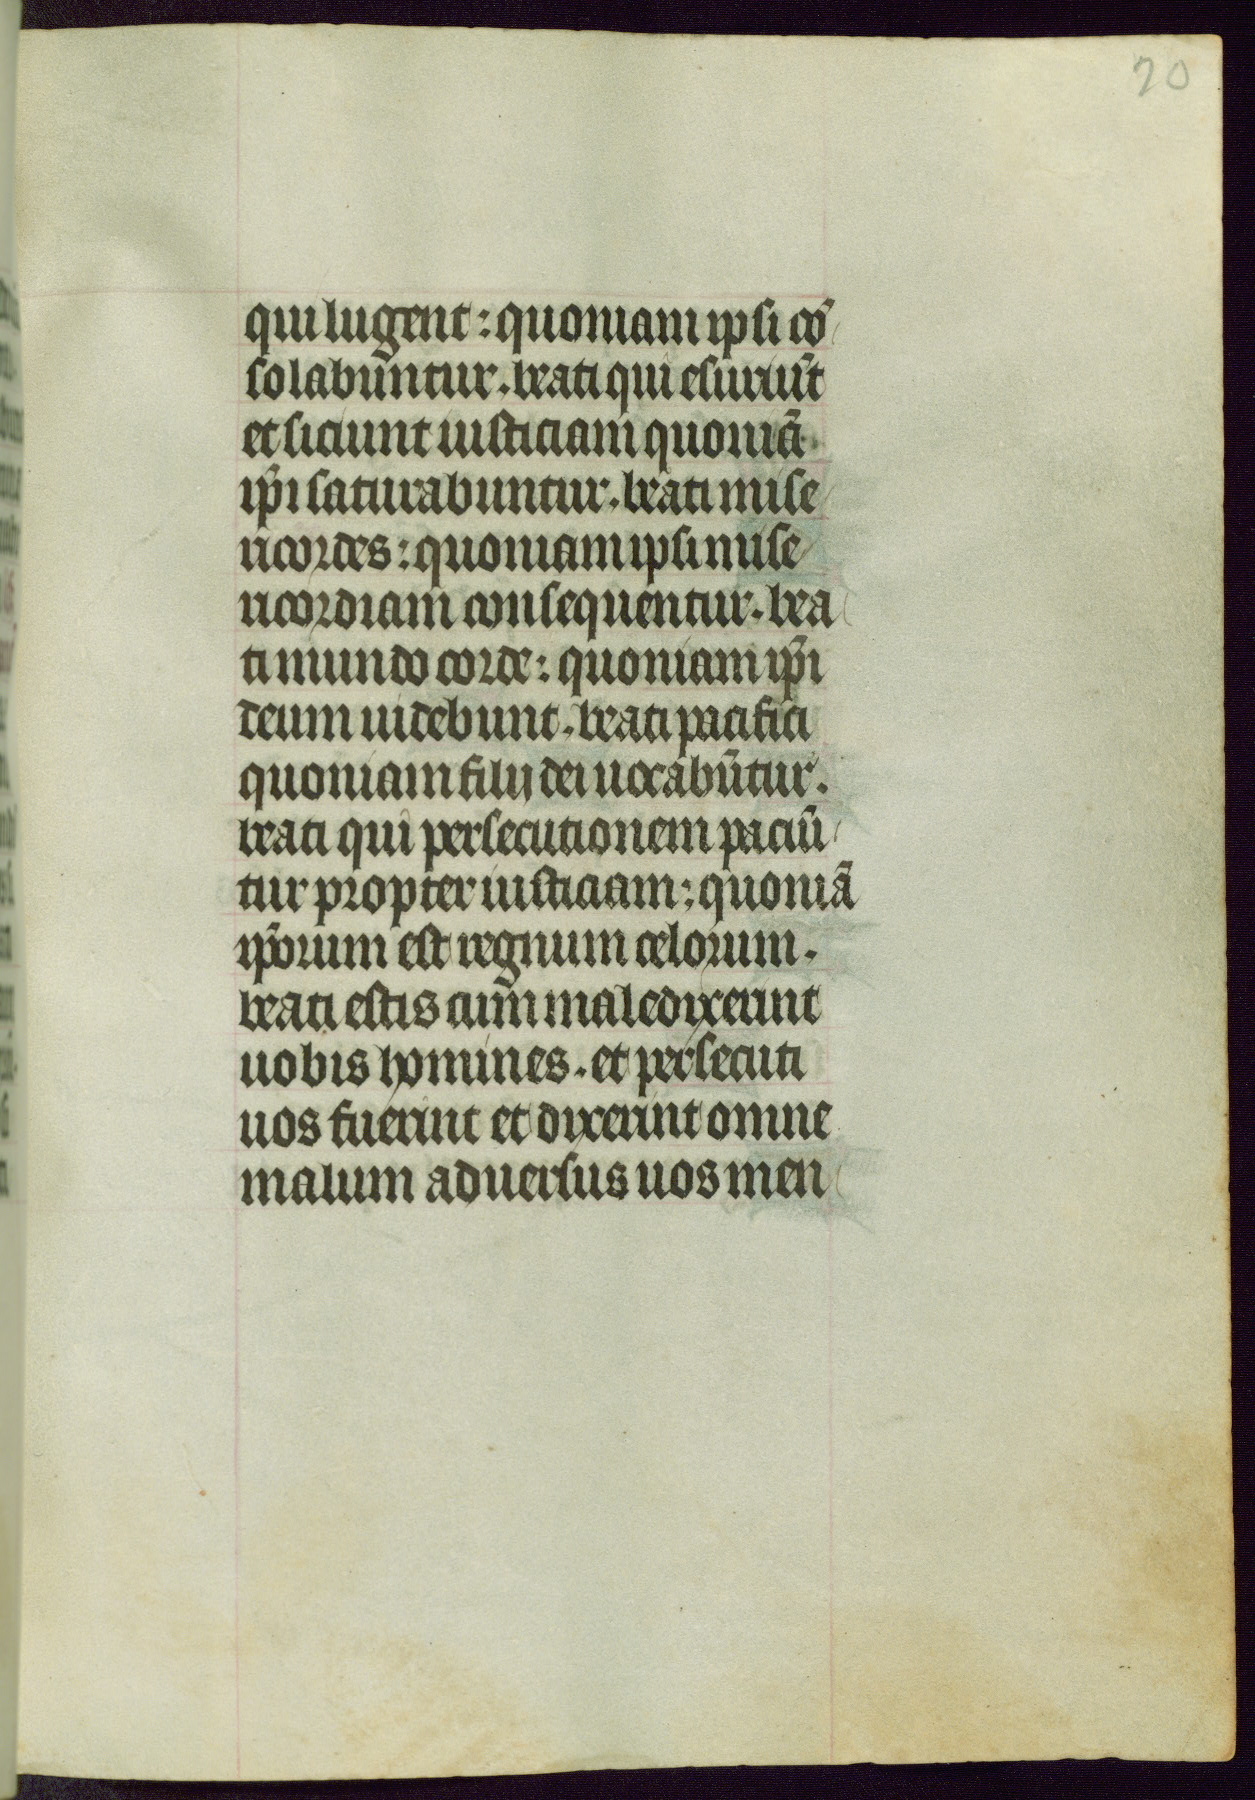 20
qui lugent: quoniam ipsi cō
solabuntur. beati qui esuriūt
et siciunt iusticiam quoniā
ip̄i saturabuntur. beati mise
ricordes: quoniam ipsi mise
ricordiam consequentur. bea
ti mundo corde: quoniam ip̄i
deum uidebunt. beati pacifici
quoniam filij dei uocabūtur.
beati qui persecutionem paciū
tur propter iusticiam: quoniā
ip̄orum est regnum celorum.
beati estis cum maledixerint
uobis homines. et persecuti
uos fuerint et dixerint omne
malum aduersus uos men